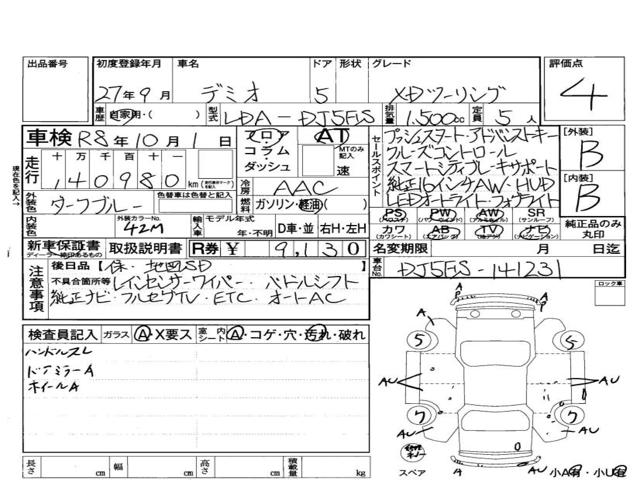 出品番号 初度登録年月 車名 ドア 形状 グレード 評価点
27年9月 デミオ 5 XDツーリング 4
車歴 自家用・( ) 型式 LDA-DJ5FS 排気量 1,500cc 定員 5人
車検 R8年10月1日 フロア コラム ダッシュ AT MTのみ記入 速
セールスポイント
プッシュスタート・アドバンストキー
クルーズコントロール
スマートシティブレーキサポート
純正16インチAW・HUD
LEDオートライト・フォグライト
[外装] B
[内装] B
走行 十万千百十一
140980 km
冷房 AAC
燃料 ガソリン・軽油( )
現在色を記入→
外装色 ダークブルー
内装色 外装カラーNo. 42M 輸入車 モデル年式 年・不明 D車・並 右H・左H
PS PW AW SR
(パワステ) (パワーウインド) (アルミホイル) (サンルーフ)
カワ AB TV ナビ
(カワシート) (エアバッグ) (テレビ) (ナビゲーション)
純正品のみ丸印
新車保証書 取扱説明書 R券 ¥ 9,130
ディーラー継印あるもの
名変期限 月 日迄
車台No. DJ5FS-141231
注意事項
後日品【保、地図SD】
不具合箇所等 レインセンサーワイパー・パドルシフト
純正ナビ・フルセグTV・ETC・オートAC
ロック車
検査員記入 ガラス A・X要ス 室内シート A・コゲ・穴・汚れ・破れ
ハンドルスレ
ドアミラーA
ホイールA
A A
A
5 5
AU AU
7 7
AU AU
スペア A A 小A有・小U有
長さ cm 幅 cm 高さ cm 積載量 kg